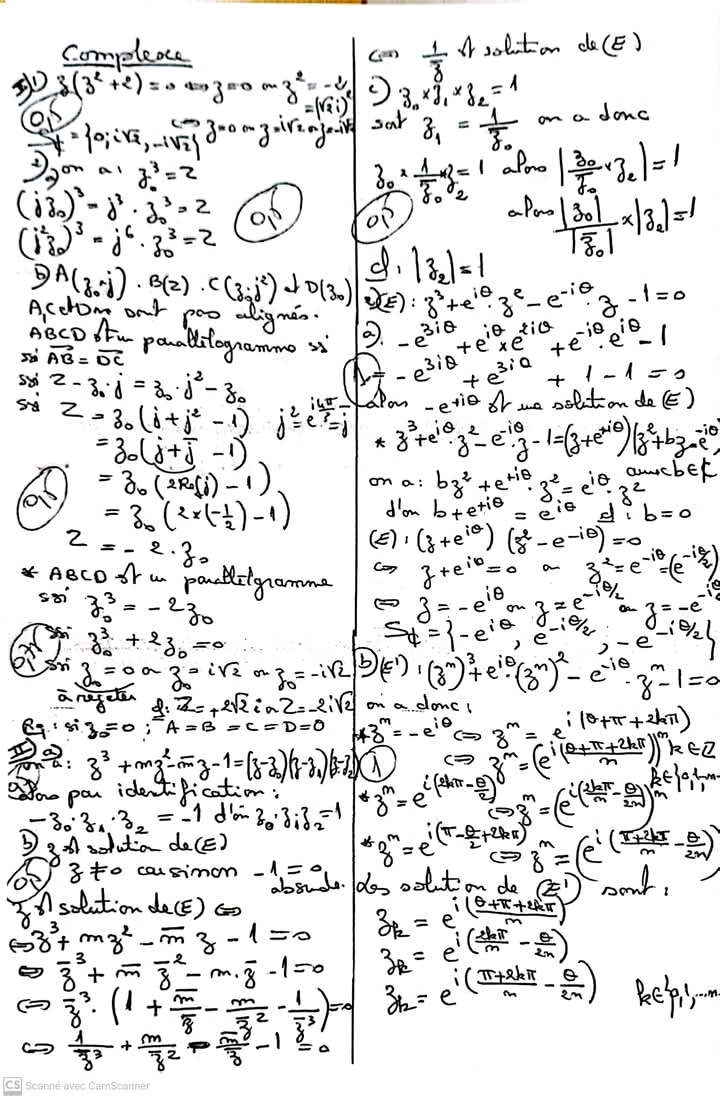 Complexe
I) 1) z(z² + 2) = 0 ⟺ z = 0 ou z² = -2
= (√2 i)²
0,5
⟺ z = 0 ou z = i√2 ou z = -i√2
S_ℂ = {0; i√2, -i√2}
on a: z₀³ = 2
(j z₀)³ = j³ · z₀³ = 2
(j² z₀)³ = j⁶ · z₀³ = 2
0,5
b) A(z₀·j) . B(z) . C(z₀·j²) et D(z₀)
A, C et D sont pas alignés.
ABCD est un parallélogramme ssi
ssi AB = DC
ssi z - z₀·j = z₀·j² - z₀
ssi z = z₀(j + j² - 1) j² = e^{i4π/3} = j̄
= z₀(j + j̄ - 1)
= z₀(2Re(j) - 1)
0,5
= z₀(2×(-1/2) - 1)
z = -2·z₀
* ABCD est un parallelgramme
ssi z₀³ = -2z₀
0,75
ssi z₀³ + 2z₀ = 0
ssi z₀ = 0 ou z₀ = i√2 ou z₀ = -i√2
à rejeter
Rq: si z₀ = 0; A = B = C = D = O
II) a)
on a: z³ + mz² - m̄z - 1 = (z-z₀)(z-z₁)(z-z₂)
alors par identification:
-z₀·z₁·z₂ = -1 d'où z₀·z₁·z₂ = 1
b) z est solution de (E)
0,5
z ≠ 0 car sinon -1 = 0
absurde.
z est solution de (E) ⟺
⟺ z³ + mz² - m̄z - 1 = 0
⟺ z̄³ + m̄ z̄² - m·z̄ - 1 = 0
⟺ z̄³·(1 + m̄/z̄ - m/z̄² - 1/z̄³) = 0
⟺ 1/z̄³ + m/z̄² - m̄/z̄ - 1 = 0
⟺ 1/z̄ est solution de (E)
c) z₀ × z₁ × z₂ = 1
soit z₁ = 1/z̄₀ on a donc
z₀ × 1/z̄₀ · z₂ = 1 alors |z₀/z̄₀ × z₂| = 1
0,5
alors |z₀|/|z̄₀| × |z₂| = 1
d: |z₂| = 1
2) (E): z³ + e^{iθ}·z² - e^{-iθ}·z - 1 = 0
a) -e^{3iθ} + e^{iθ} × e^{2iθ} + e^{-iθ}·e^{iθ} - 1
= -e^{3iθ} + e^{3iθ} + 1 - 1 = 0
alors -e^{+iθ} est une solution de (E)
* z³ + e^{iθ}·z² - e^{-iθ}·z - 1 = (z + e^{+iθ})(z² + bz - e^{-iθ}
avec b∈ℂ
on a: bz² + e^{+iθ}·z² = e^{iθ}·z²
d'où b + e^{+iθ} = e^{iθ} d: b = 0
(E): (z + e^{iθ})(z² - e^{-iθ}) = 0
⟺ z + e^{iθ} = 0 ou z² = e^{-iθ} = (e^{-iθ/2})
⟺ z = -e^{iθ} ou z = e^{-iθ/2} ou z = -e^{-iθ/2}
S_ℂ = {-e^{iθ}, e^{-iθ/2}, -e^{-iθ/2}}
b) (E'): (zⁿ)³ + e^{iθ}·(zⁿ)² - e^{-iθ}·zⁿ - 1 = 0
on a donc:
* zⁿ = -e^{iθ} ⟺ zⁿ = e^{i(θ+π+2kπ)}
1
⟺ zⁿ = (e^{i(θ+π+2kπ)/n})ⁿ k∈ℤ
k∈{0,1,...n-
* zⁿ = e^{i(2kπ - θ/2)} ⟺ zⁿ = (e^{i(2kπ/n - θ/2n)})ⁿ
* zⁿ = e^{i(π - θ/2 + 2kπ)} ⟺ zⁿ = (e^{i((π+2kπ)/n - θ/2n)})ⁿ
Les solution de (E') sont:
z_k = e^{i((θ+π+2kπ)/n)}
z_k = e^{i(2kπ/n - θ/2n)}
z_k = e^{i((π+2kπ)/n - θ/2n)} k∈{0,1,...n-
CS Scanné avec CamScanner